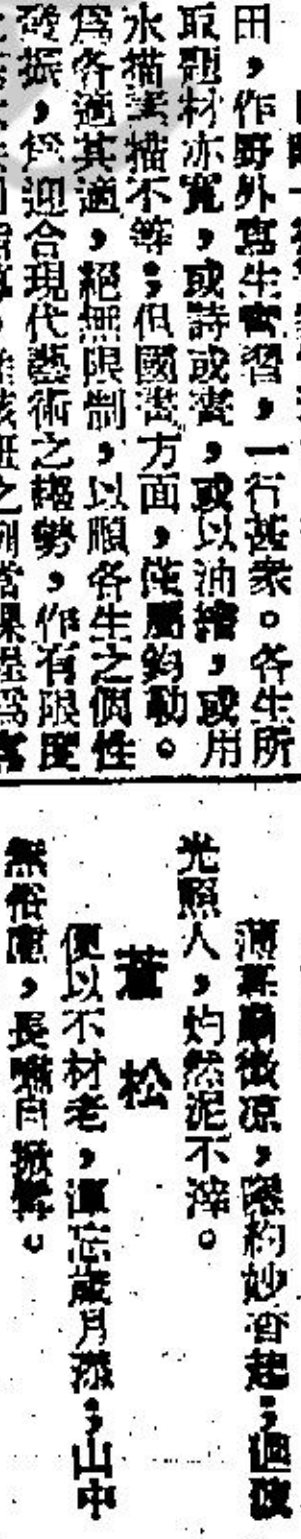 田，作野外寫生實習，一行甚衆。各生所
取題材亦寬，或詩或畫，或以油繪，或用
水描漢描不等；但國畫方面，僅屬鈎勒。
爲各適其適，絕無限制，以順各生之個性
發振，迎合現代藝術之趨勢，作有限度
之課程爲
薄暮颺微凉，隱約妙香起；個
光照人，灼然泥不滓。
蒼松
便以不材老，渾忘歲月深；山中
無俗慮，長嘯自掀髯。